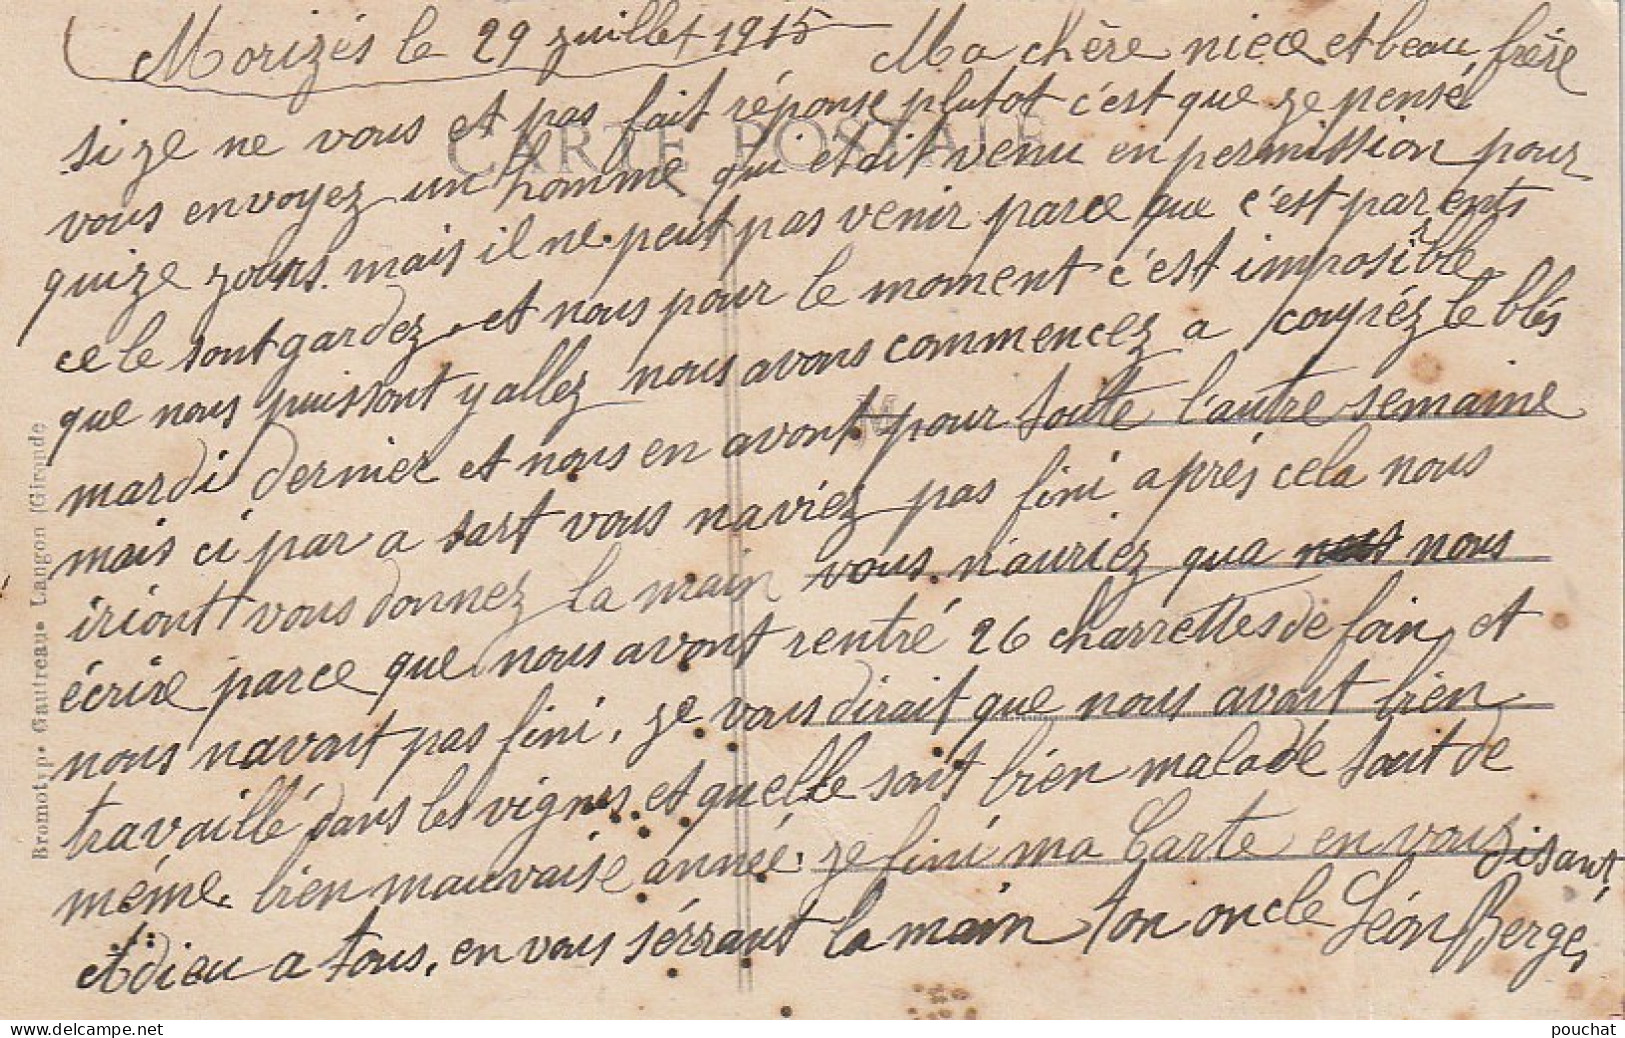 Morizès le 29 zuillet 1915 Ma chère niece et beau frère
si ze ne vous et pas fait réponse plutot c'est que ze pensé
vous envoyez un homme qui était venu en permission pour
quize zours. mais il ne peut pas venir parce que c'est parents
ce le sont gardez. et nous pour le moment c'est imposible
que nous puissont y allez nous avons commencez a coupéz le blés
mardi dernier et nous en avont pour toute l'autre semaine
mais ci par a sart vous naviez pas fini aprés cela nous
iriont vous donnez la main vous n'auriez qua nous
écrire parce que nous avont rentré 26 charrettes de foin et
nous navont pas fini, ze vous dirait que nous avont bien
travaillé dans les vignes et quelle sont bien maladé tout de
méme. bien mauvaise année. ze fini ma Carte en vous disant
Adieu a tous, en vous sérrant la main ton oncle Léon Bergé,
CARTE POSTALE
M
Bromotyp. Gautreau. Langon (Gironde
delcampe.net
pouchat